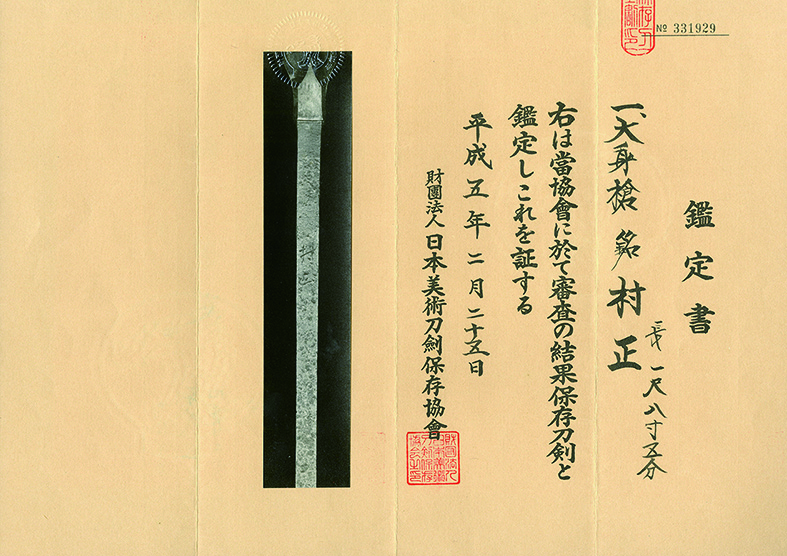 № 331929
鑑定書
一、大身槍 銘 村正
長 一尺八寸五分
右は當協會に於て審査の結果保存刀剣と
鑑定しこれを証する
平成五年二月二十五日
財團法人日本美術刀劍保存協會
村正